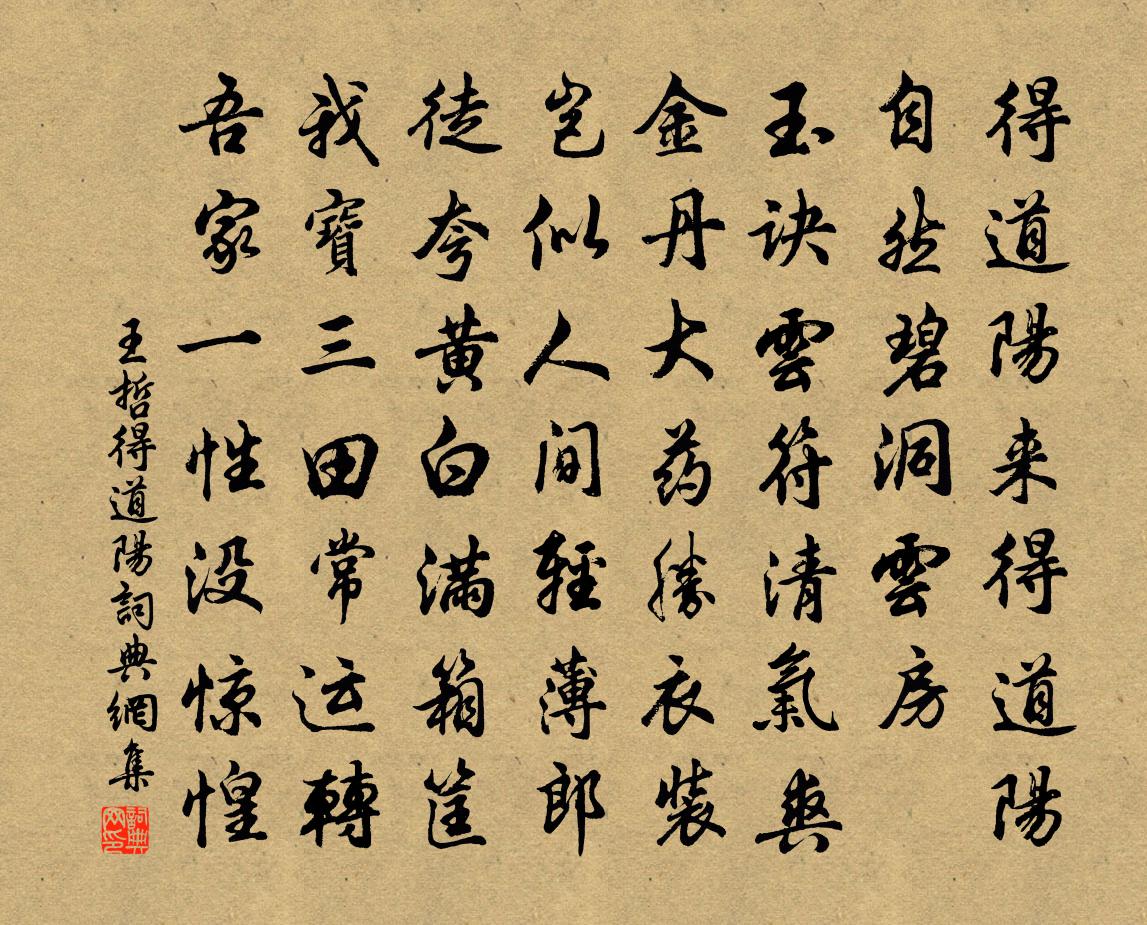 得道陽来得道陽
自然碧洞雲房
玉诀雲符清氣爽
金丹大药勝衣裝
岂似人间輕薄郎
徒夸黄白满箱筐
我寶三田常运轉
吾家一性没惊惶
王哲得道陽詞典網集
詞典网印